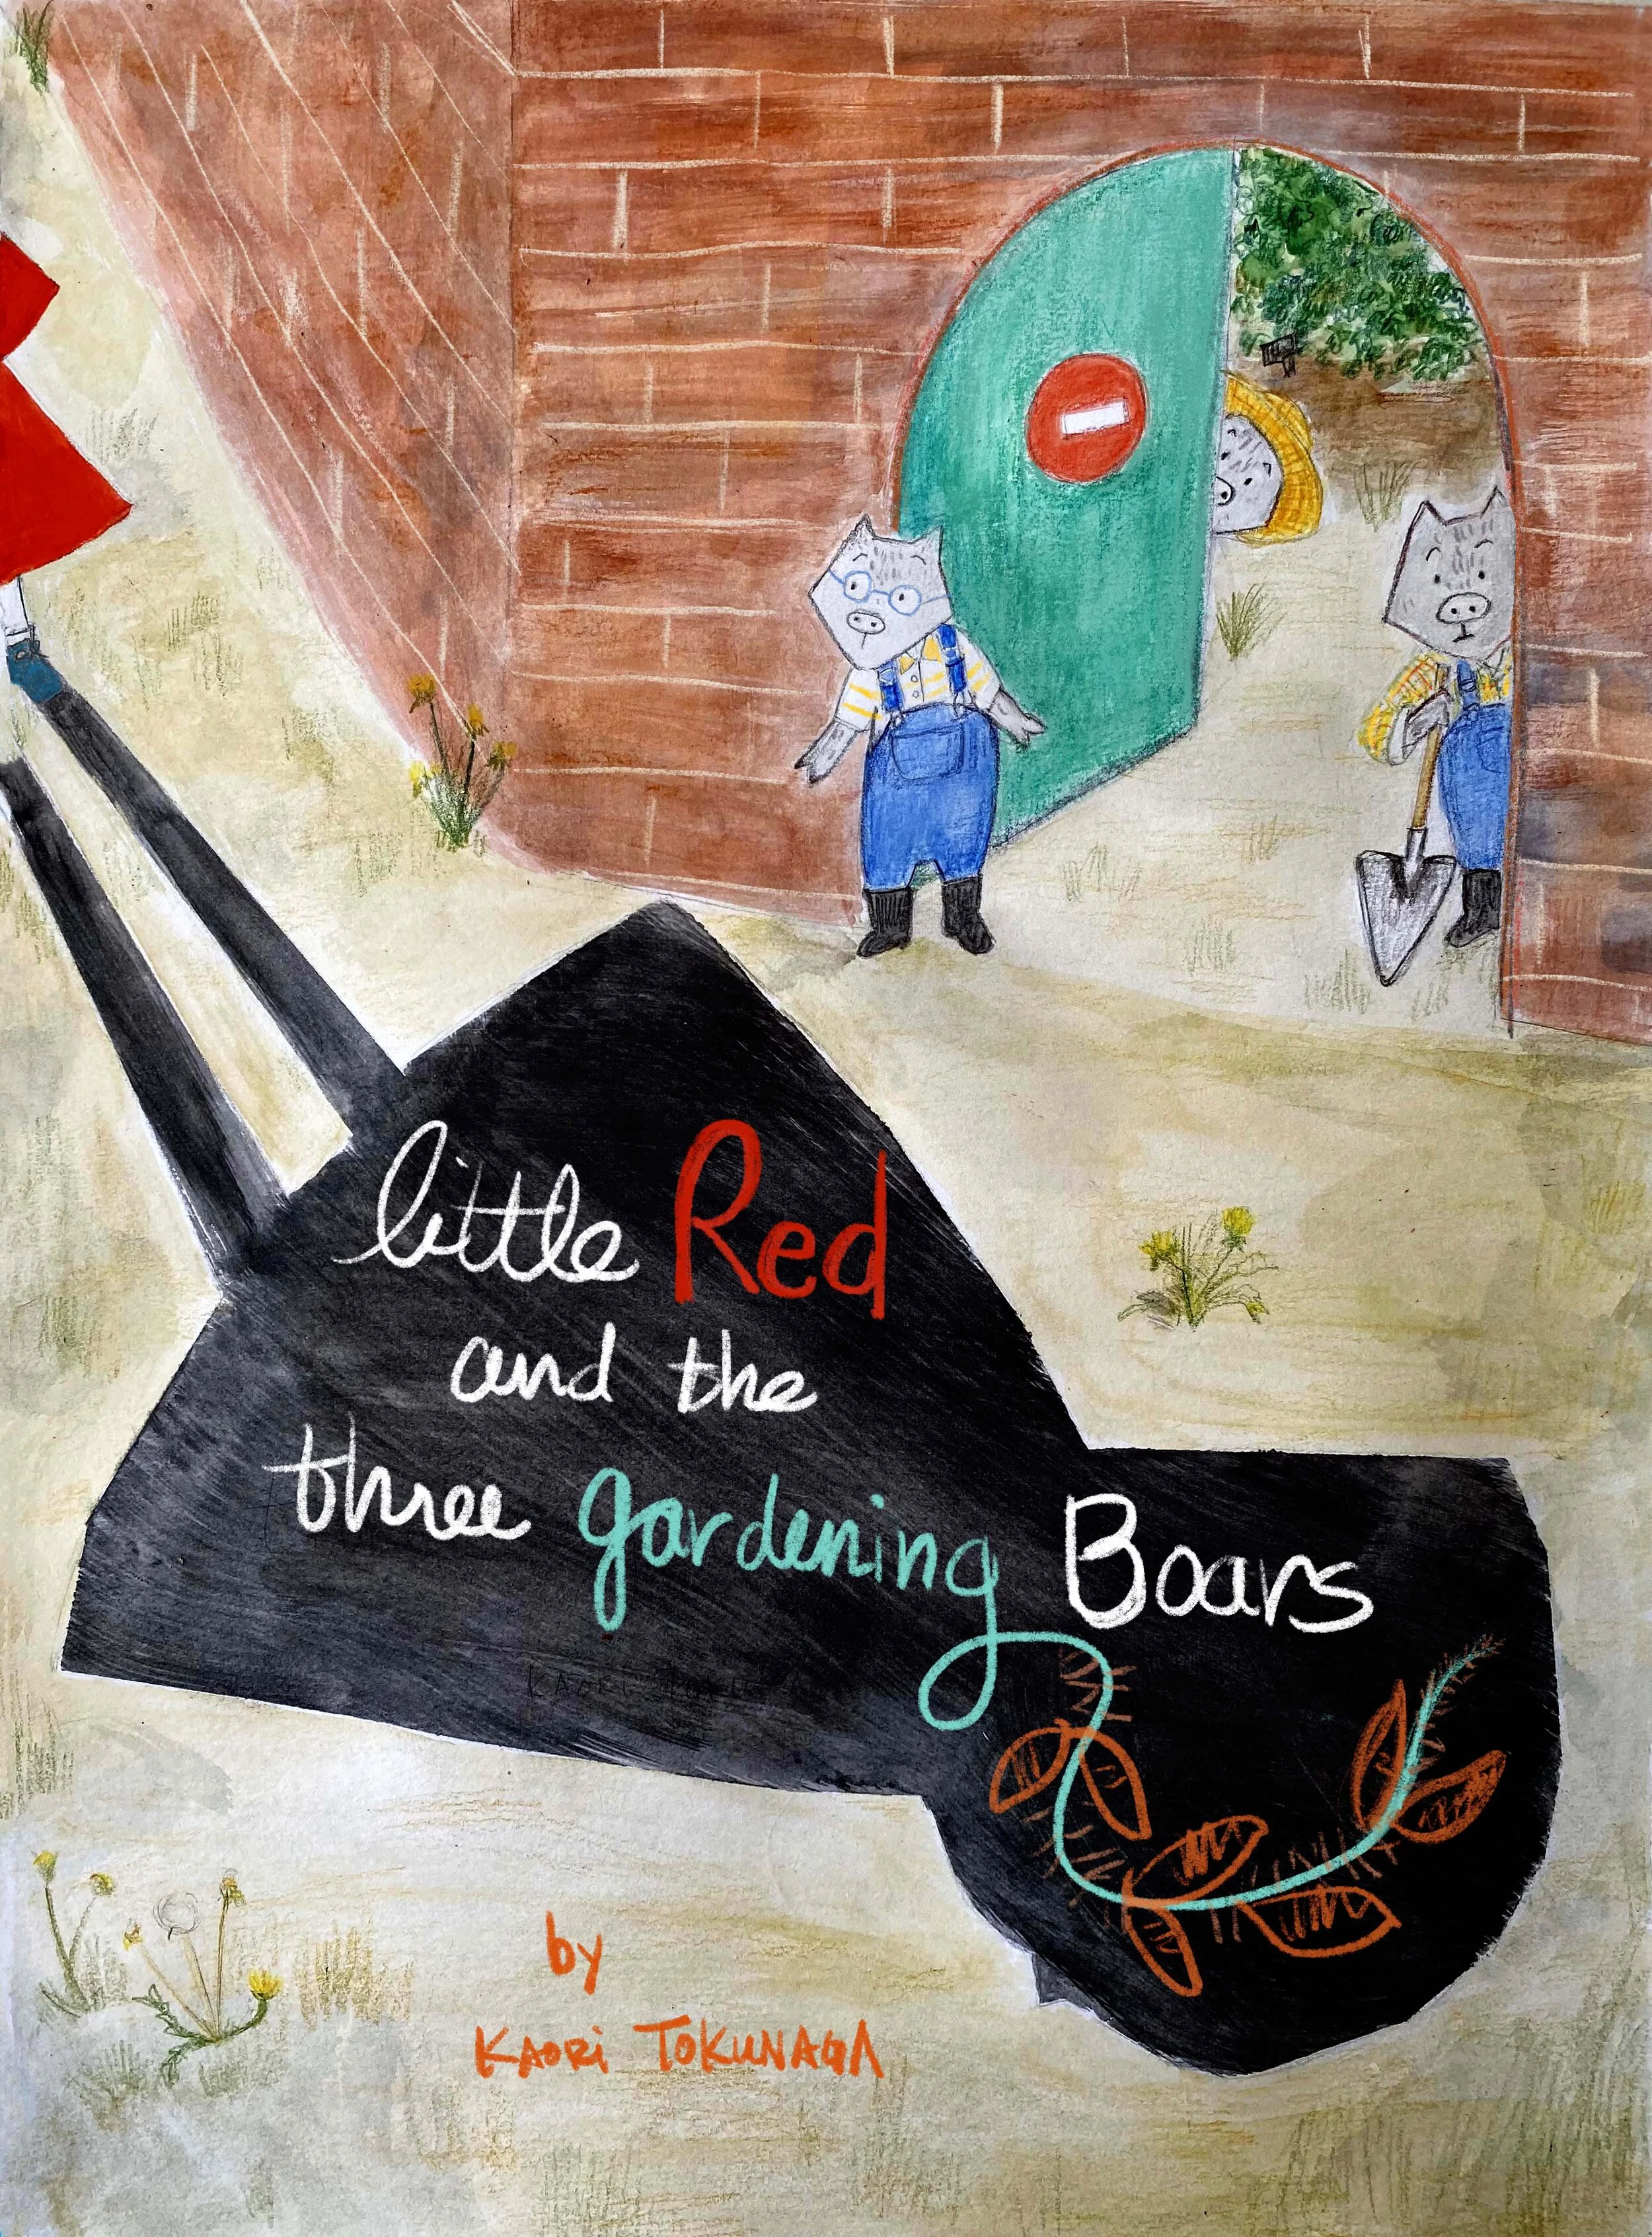 little Red
and the
three gardening Boars
by
KAORI TOKUNAGA